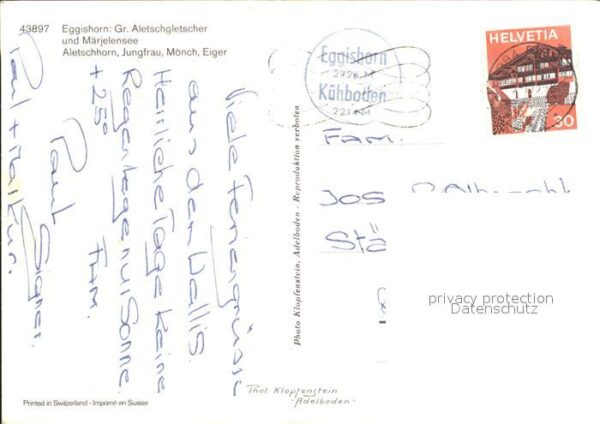 43897 Eggishorn: Gr. Aletschgletscher
und Märjelensee
Aletschhorn, Jungfrau, Mönch, Eiger
Viele Feriengrüsse
aus dem Wallis.
Herrliche Tage keine
Regentage nur Sonne
+25°
Fam.
Paul
Paul +
Photo Klopfenstein, Adelboden - Reproduktion verboten
Eggishorn
2926 M
Kühboden
2214 M
HELVETIA
30
Fam.
Jos
Stä
privacy protection
Datenschutz
Phot Klopfenstein
-Adelboden-
Printed in Switzerland - Imprimé en Suisse